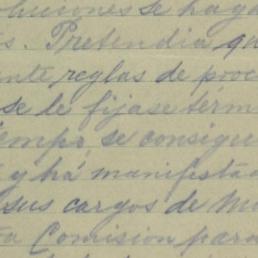 luciones se haga
s. Pretendia qu
ente reglas de proce
se le fijase térm
iempo, se consigu
y há manifestad
sus cargos de Mi
ta Comision para